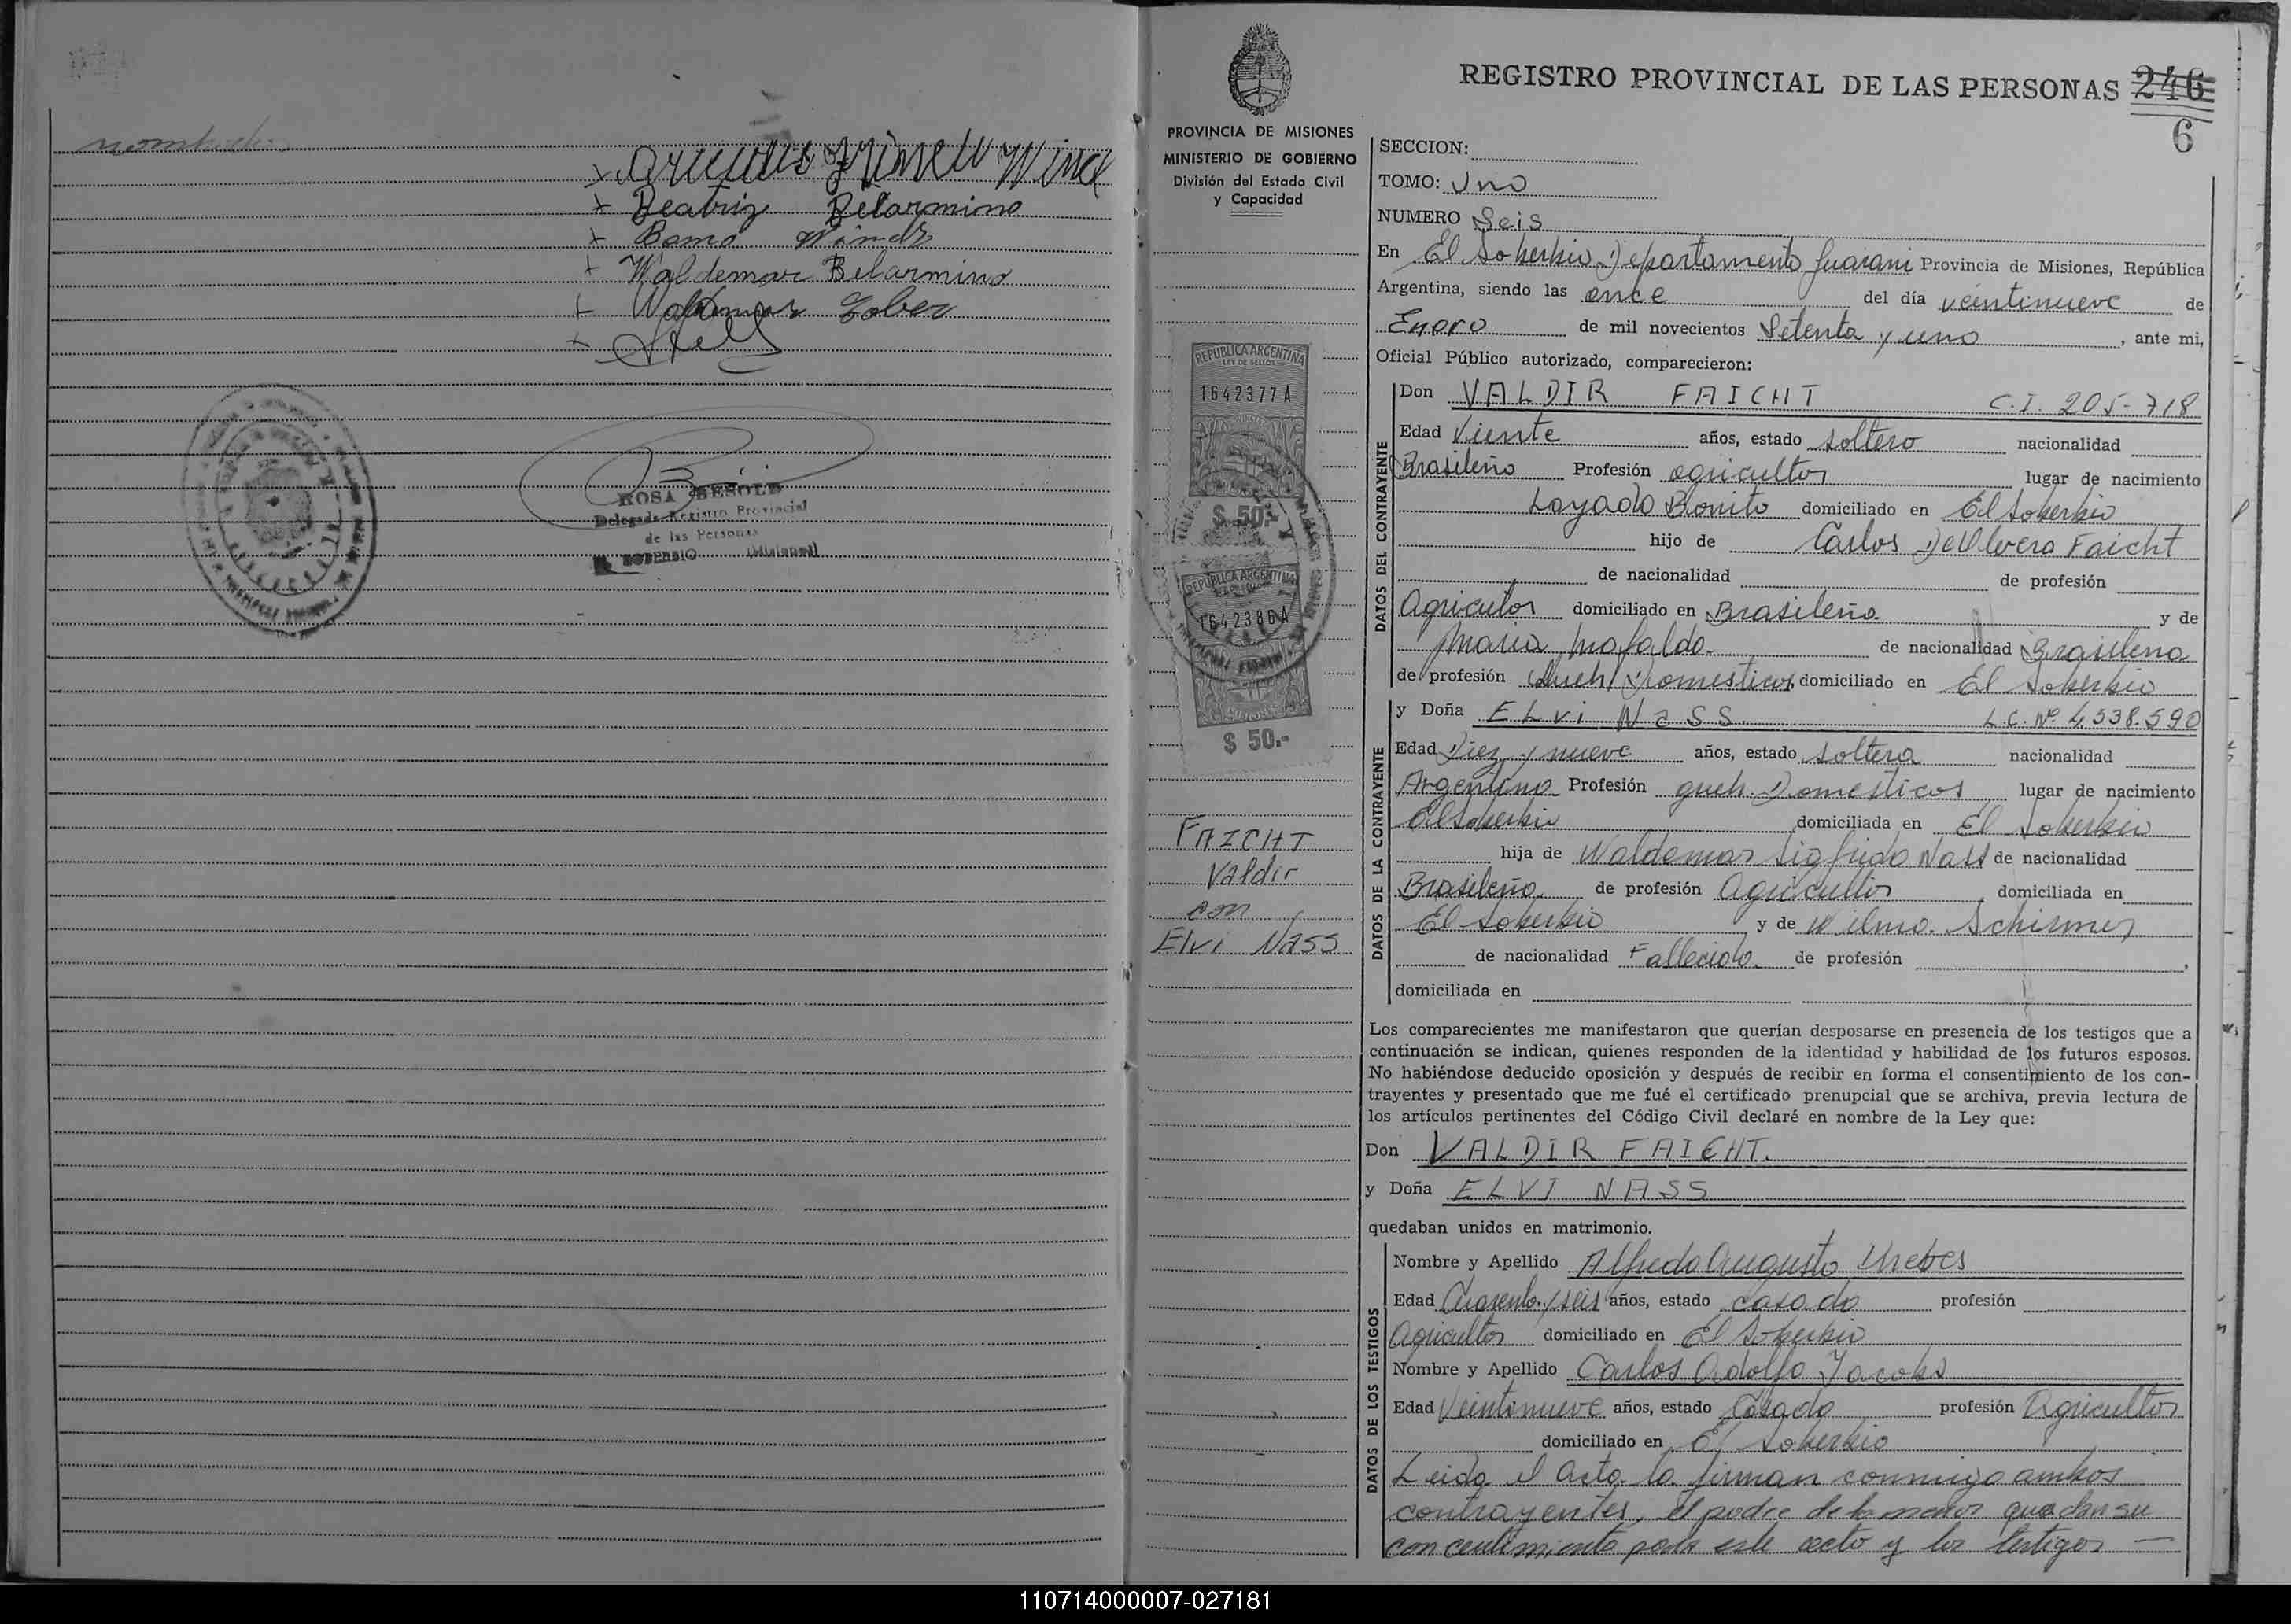 nombrado.
Beatriz Belarmino
Waldemar Belarmino
ROSA BESOLD
Delegada Registro Provincial
de las Personas
EL SOBERBIO (Misiones)
PROVINCIA DE MISIONES
MINISTERIO DE GOBIERNO
División del Estado Civil
y Capacidad
REPUBLICA ARGENTINA
LEY DE SELLOS
1642377 A
$ 50.-
REPUBLICA ARGENTINA
1642386A
MISIONES
$ 50.-
FAICHT
Valdir
con
Elvi Nass
REGISTRO PROVINCIAL DE LAS PERSONAS 246
6
SECCION:
TOMO: Uno
NUMERO Seis
En El Soberbio Departamento Guarani Provincia de Misiones, República
Argentina, siendo las once del día veintinueve de
Enero de mil novecientos Setenta y uno, ante mi,
Oficial Público autorizado, comparecieron:
DATOS DEL CONTRAYENTE
Don VALDIR FAICHT C.I. 205-718
Edad Viente años, estado soltero nacionalidad
Brasileño Profesión agricultor lugar de nacimiento
Layado Bonito domiciliado en El Soberbio
hijo de Carlos De Faicht
de nacionalidad de profesión
Agricultor domiciliado en Brasileño y de
Maria Mafalda de nacionalidad Brasilena
de profesión Queh. Domesticos, domiciliado en El Soberbio
DATOS DE LA CONTRAYENTE
y Doña ELvi Nass L.C. Nº 4.538.590
Edad Diez y nueve años, estado soltera nacionalidad
Argentina Profesión queh. Domesticos lugar de nacimiento
El Soberbio domiciliada en El Soberbio
hija de Waldemar Sigfrido Nass de nacionalidad
Brasileño de profesión Agricultor domiciliada en
El Soberbio y de Wilma Schirmer
de nacionalidad Fallecida de profesión ,
domiciliada en
Los comparecientes me manifestaron que querían desposarse en presencia de los testigos que a
continuación se indican, quienes responden de la identidad y habilidad de los futuros esposos.
No habiéndose deducido oposición y después de recibir en forma el consentimiento de los con-
trayentes y presentado que me fué el certificado prenupcial que se archiva, previa lectura de
los artículos pertinentes del Código Civil declaré en nombre de la Ley que:
Don VALDIR FAICHT.
y Doña ELVI NASS
quedaban unidos en matrimonio.
DATOS DE LOS TESTIGOS
Nombre y Apellido Alfredo Augusto
Edad Cuarenta y seis años, estado casado profesión
Agricultor domiciliado en El Soberbio
Nombre y Apellido Carlos Adolfo Jacobs
Edad Veintinueve años, estado Casado profesión Agricultor
domiciliado en El Soberbio
Leida el Acta la firman conmigo ambos
contrayentes, el padre de la menor que dan su
concentimiento para este acto y los testigos —
110714000007-027181